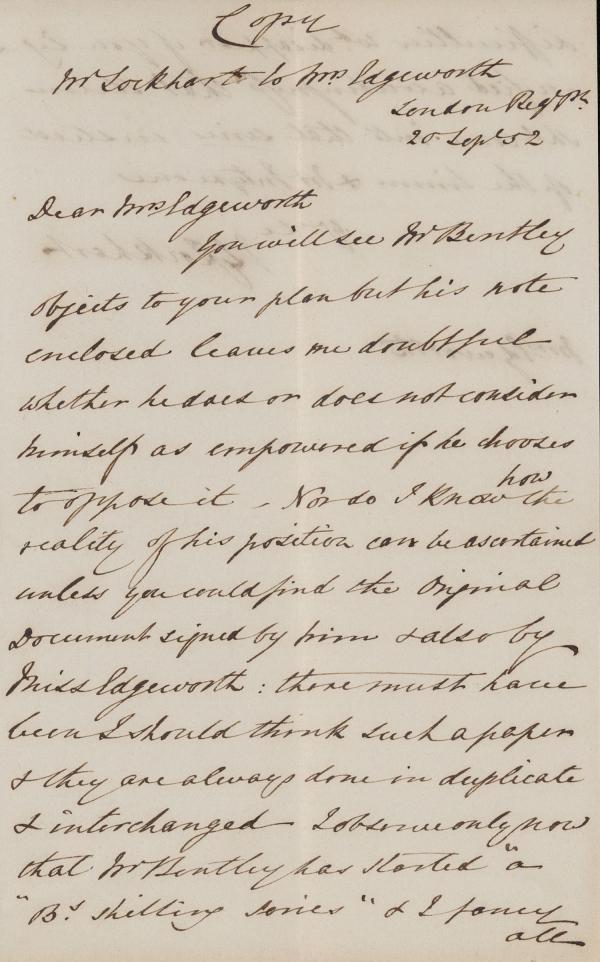 Copy
Mr Lockhart to Mrs Edgeworth
London Regts Pk
20 Sept 52
Dear Mrs Edgeworth
You will see Mr Bentley
objects to your plan but his note
enclosed leaves me doubtful
whether he does or does not consider
himself as empowered if he chooses
to oppose it - Nor do I know how the
reality of his position can be ascertained
unless you could find the Original
Document signed by him & also by
Miss Edgeworth : there must have
been I should think such a paper
& they are always done in duplicate
& interchanged I observe only now
that Mr Bentley has started "a
"Bs shilling series" & I fancy
all